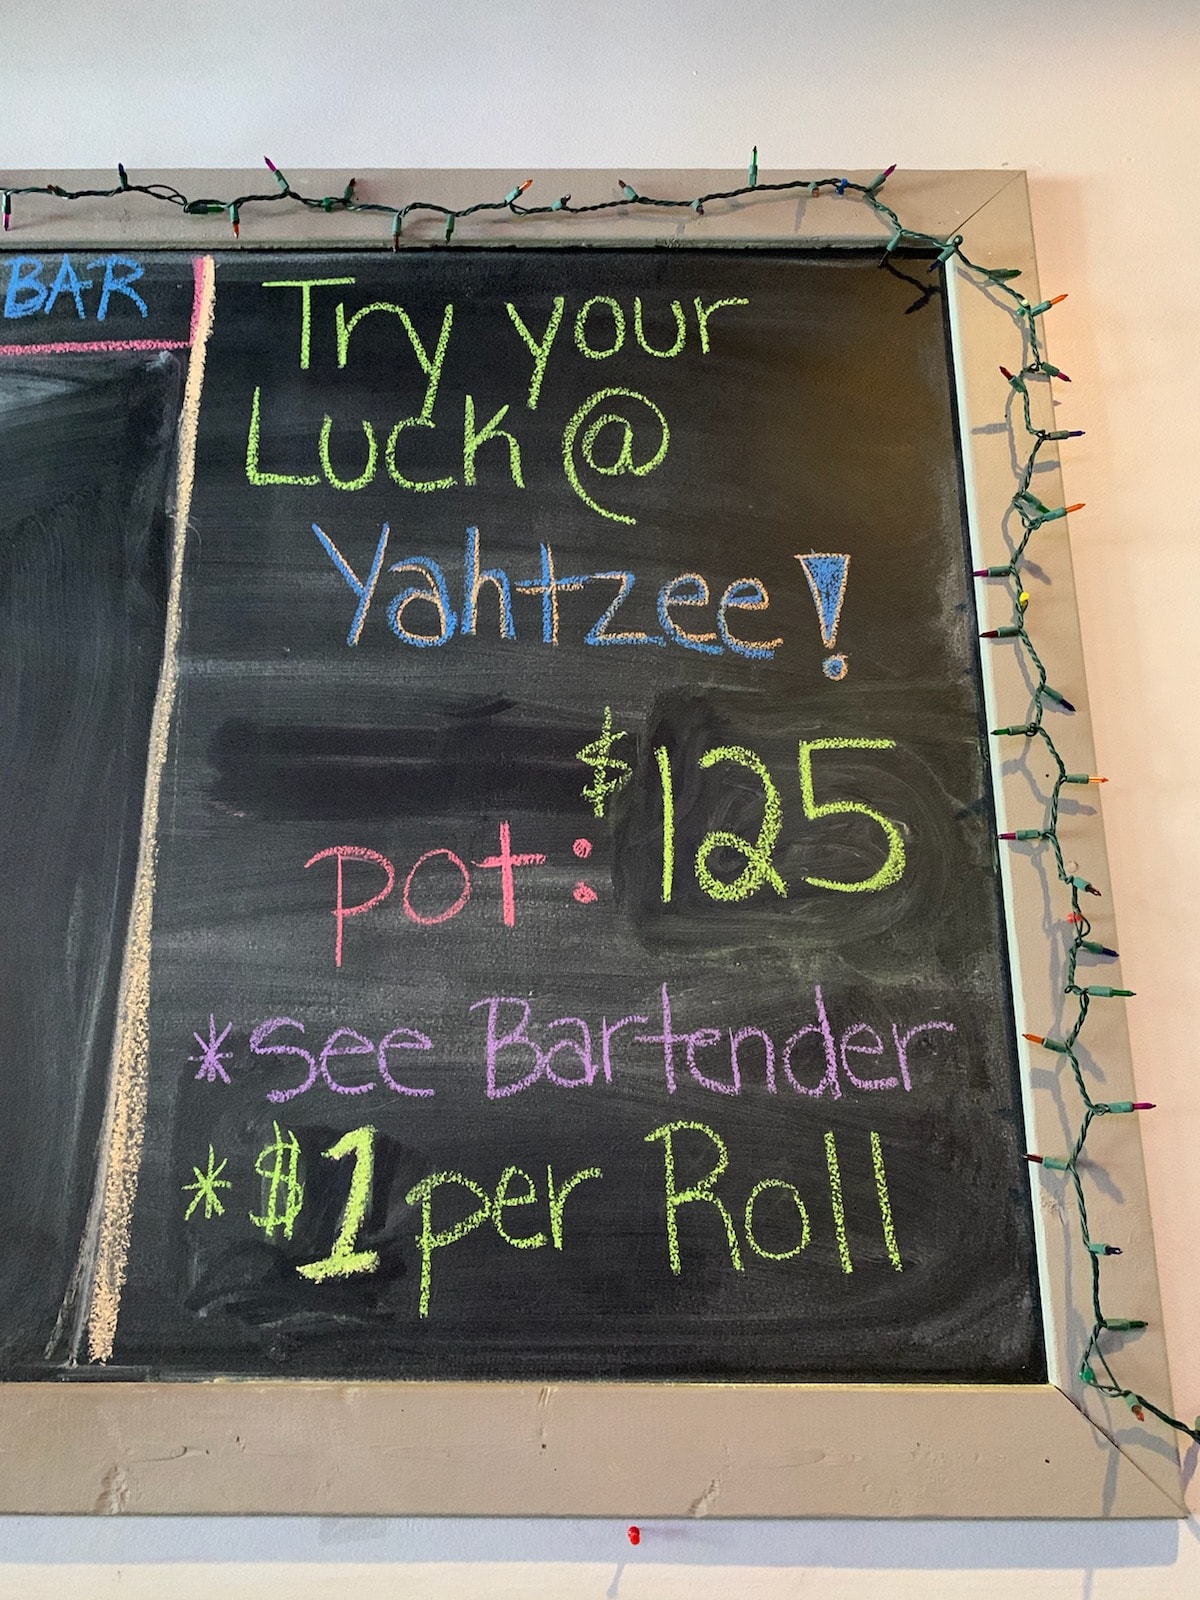 BAR
Try your
Luck @
Yahtzee!
pot: $125
*see Bartender
*$1 per Roll